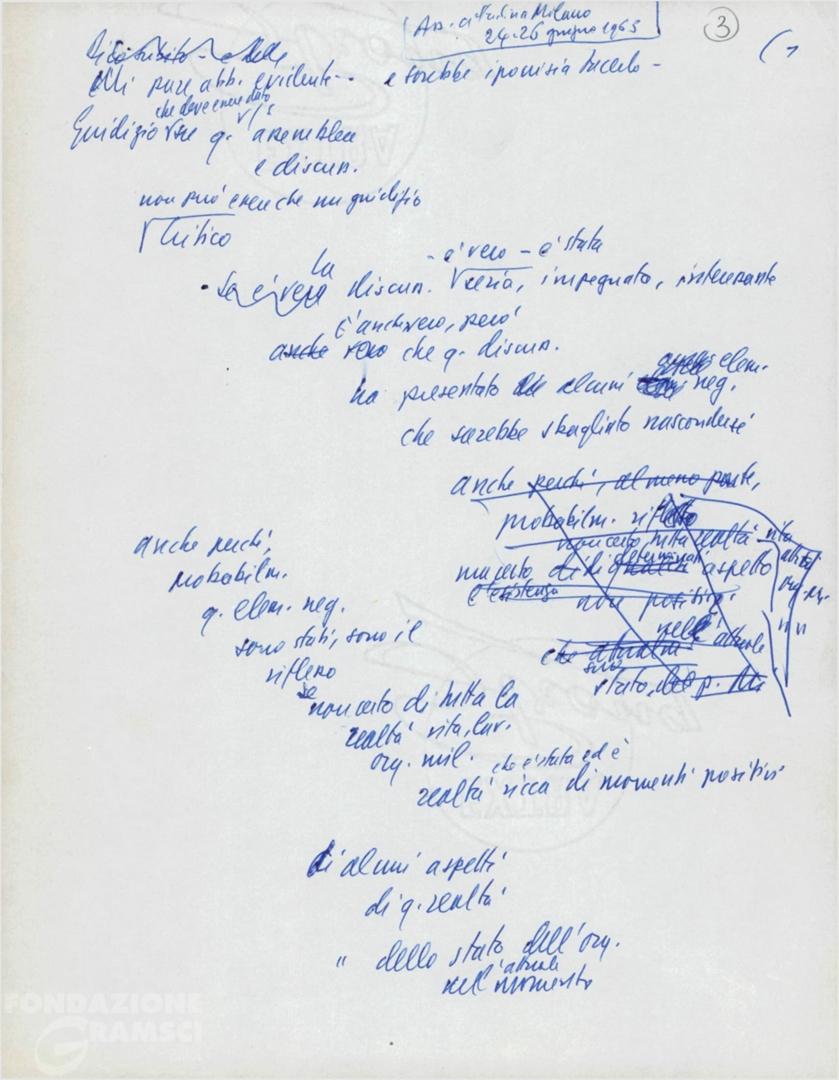 Ass. cittadina Milano
24-26 giugno 1965
3
(1
Mi pare abb. evidente - e sarebbe ipocrisia tacerlo -
che deve essere dato
Giudizio su q. assemblea
e discuss.
non può essere che un giudizio
critico
- è vero - è stata
La
Se è vero discuss. seria, impegnata, interessante
È anche vero, però
anche vero che q. discuss.
ha presentato alcuni elem. neg.
che sarebbe sbagliato nascondersi
anche perché, almeno parte,
probabilm. riflesso
non certo tutta realtà vita
determinati
ma certo di aspetto
e esistenza non positivi
nell'attuale
che attualm
suo
stato del p. Mi
anche perché,
probabilm.
q. elem. neg.
sono stati, sono il
riflesso
se
non certo di tutta la
realtà vita, lav.
org. mil.
che è stata ed è
realtà ricca di momenti positivi
di alcuni aspetti
di q. realtà
" dello stato dell'org.
attuale
nell'momento
FONDAZIONE
GRAMSCI